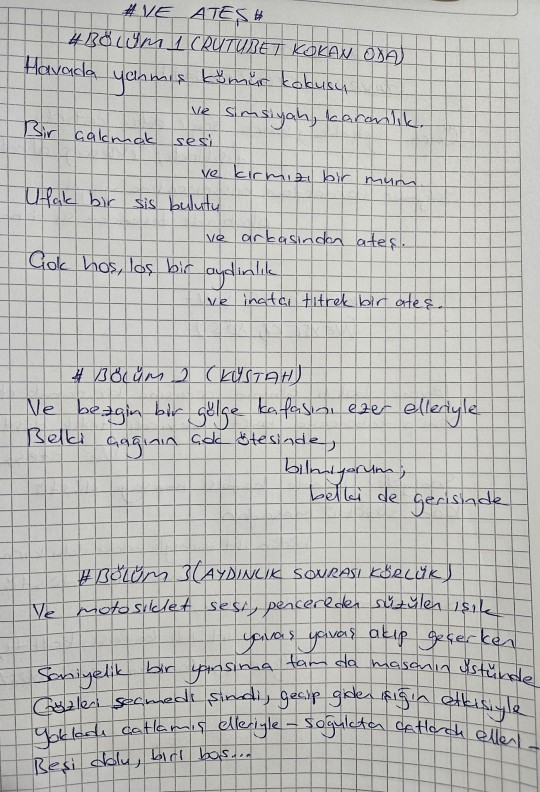 #VE ATEŞ#
#BÖLÜM 1 (RUTUBET KOKAN ODA)
Havada yanmış kömür kokusu
ve simsiyah, karanlık.
Bir çakmak sesi
ve kırmızı bir mum
Ufak bir sis bulutu
ve arkasından ateş.
Çok hoş, loş bir aydınlık
ve inatçı titrek bir ateş.
# BÖLÜM 2 (KÜSTAH)
Ve bezgin bir gölge kafasını ezer elleriyle
Belki çağının çok ötesinde,
bilmiyorum;
belki de gerisinde
#BÖLÜM 3 (AYDINLIK SONRASI KÖRLÜK)
Ve motosiklet sesi, pencereden süzülen ışık
yavaş yavaş akıp geçerken
Saniyelik bir yansıma tam da masanın üstünde
Gözleri seçmedi şimdi, geçip giden ışığın etkisiyle
Yokladı çatlamış elleriyle - soğuktan çatlardı elleri -
Beşi dolu, biri boş...